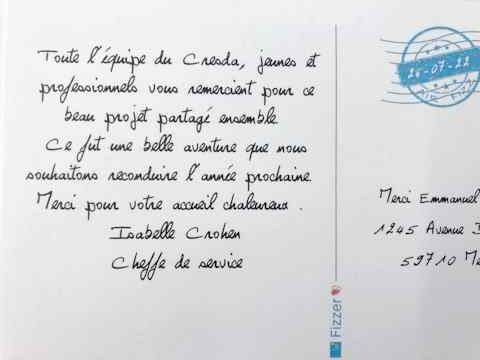 Toute l'équipe du Cresda, jeunes et
professionnels vous remercient pour ce
beau projet partagé ensemble.
Ce fut une belle aventure que nous
souhaitons reconduire l'année prochaine.
Merci pour votre accueil chaleureux.
Isabelle Crohen
Cheffe de service
26-07-22
Merci Emmanuel
1245 Avenue
59710
Fizzer